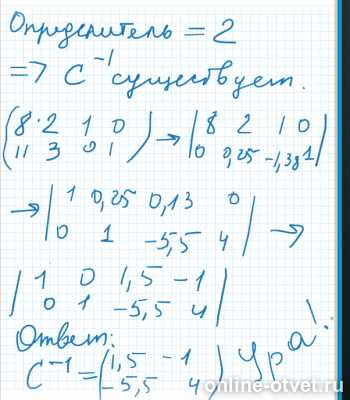 Определитель = 2
=> C⁻¹ существует.
(8 2 1 0) → |8 2 1 0|
(11 3 0 1) |0 0,25 -1,38 1|
→ |1 0,25 0,13 0|
|0 1 -5,5 4| →
|1 0 1,5 -1|
|0 1 -5,5 4|
Ответ:
C⁻¹ = (1,5 -1) Ура!
(-5,5 4)
online-otvet.ru